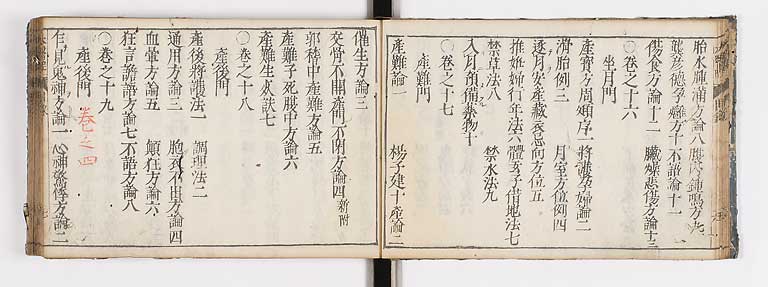 胎水腫滿方論八 腹內鍾鳴方九
龔彥德孕難方十 不語論十一
傷食方論十二 臟燥悲傷方論十三
〇卷之十六
坐月門
產寶方周頲序一 將護孕婦論二
滑胎例三 月空方位例四
逐月安產藏衣忌向方位五
推婦行年法六 體玄子借地法七
禁草法八 禁水法九
入月預備藥物十
〇卷之十七
產難門
產難論一 楊子建十產論二
催生方論三
交骨不開產門不閉方論四 新附
郭稽中產難方論五
產難子死腹中方論六
產難生死訣七
〇卷之十八
產後門
產後將護法一 調理法二
通用方論三 胞衣不出方論四
血暈方論五 顛狂方論六
狂言譫語方論七 不語方論八
〇卷之十九
產後門
卷之四
乍見鬼神方論一 心神驚悸方論二